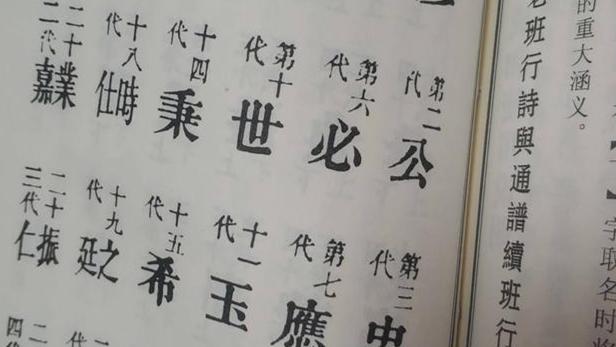 的重大涵义。
字取名时
班行詩與通譜續班行
第二代
公
第三代
第六代
必
第七代
應
第十代
世
十一代
玉
十四代
秉
十五代
希
十八代
時仕
十九代
之廷
二十二代
業嘉
二十三代
振仁